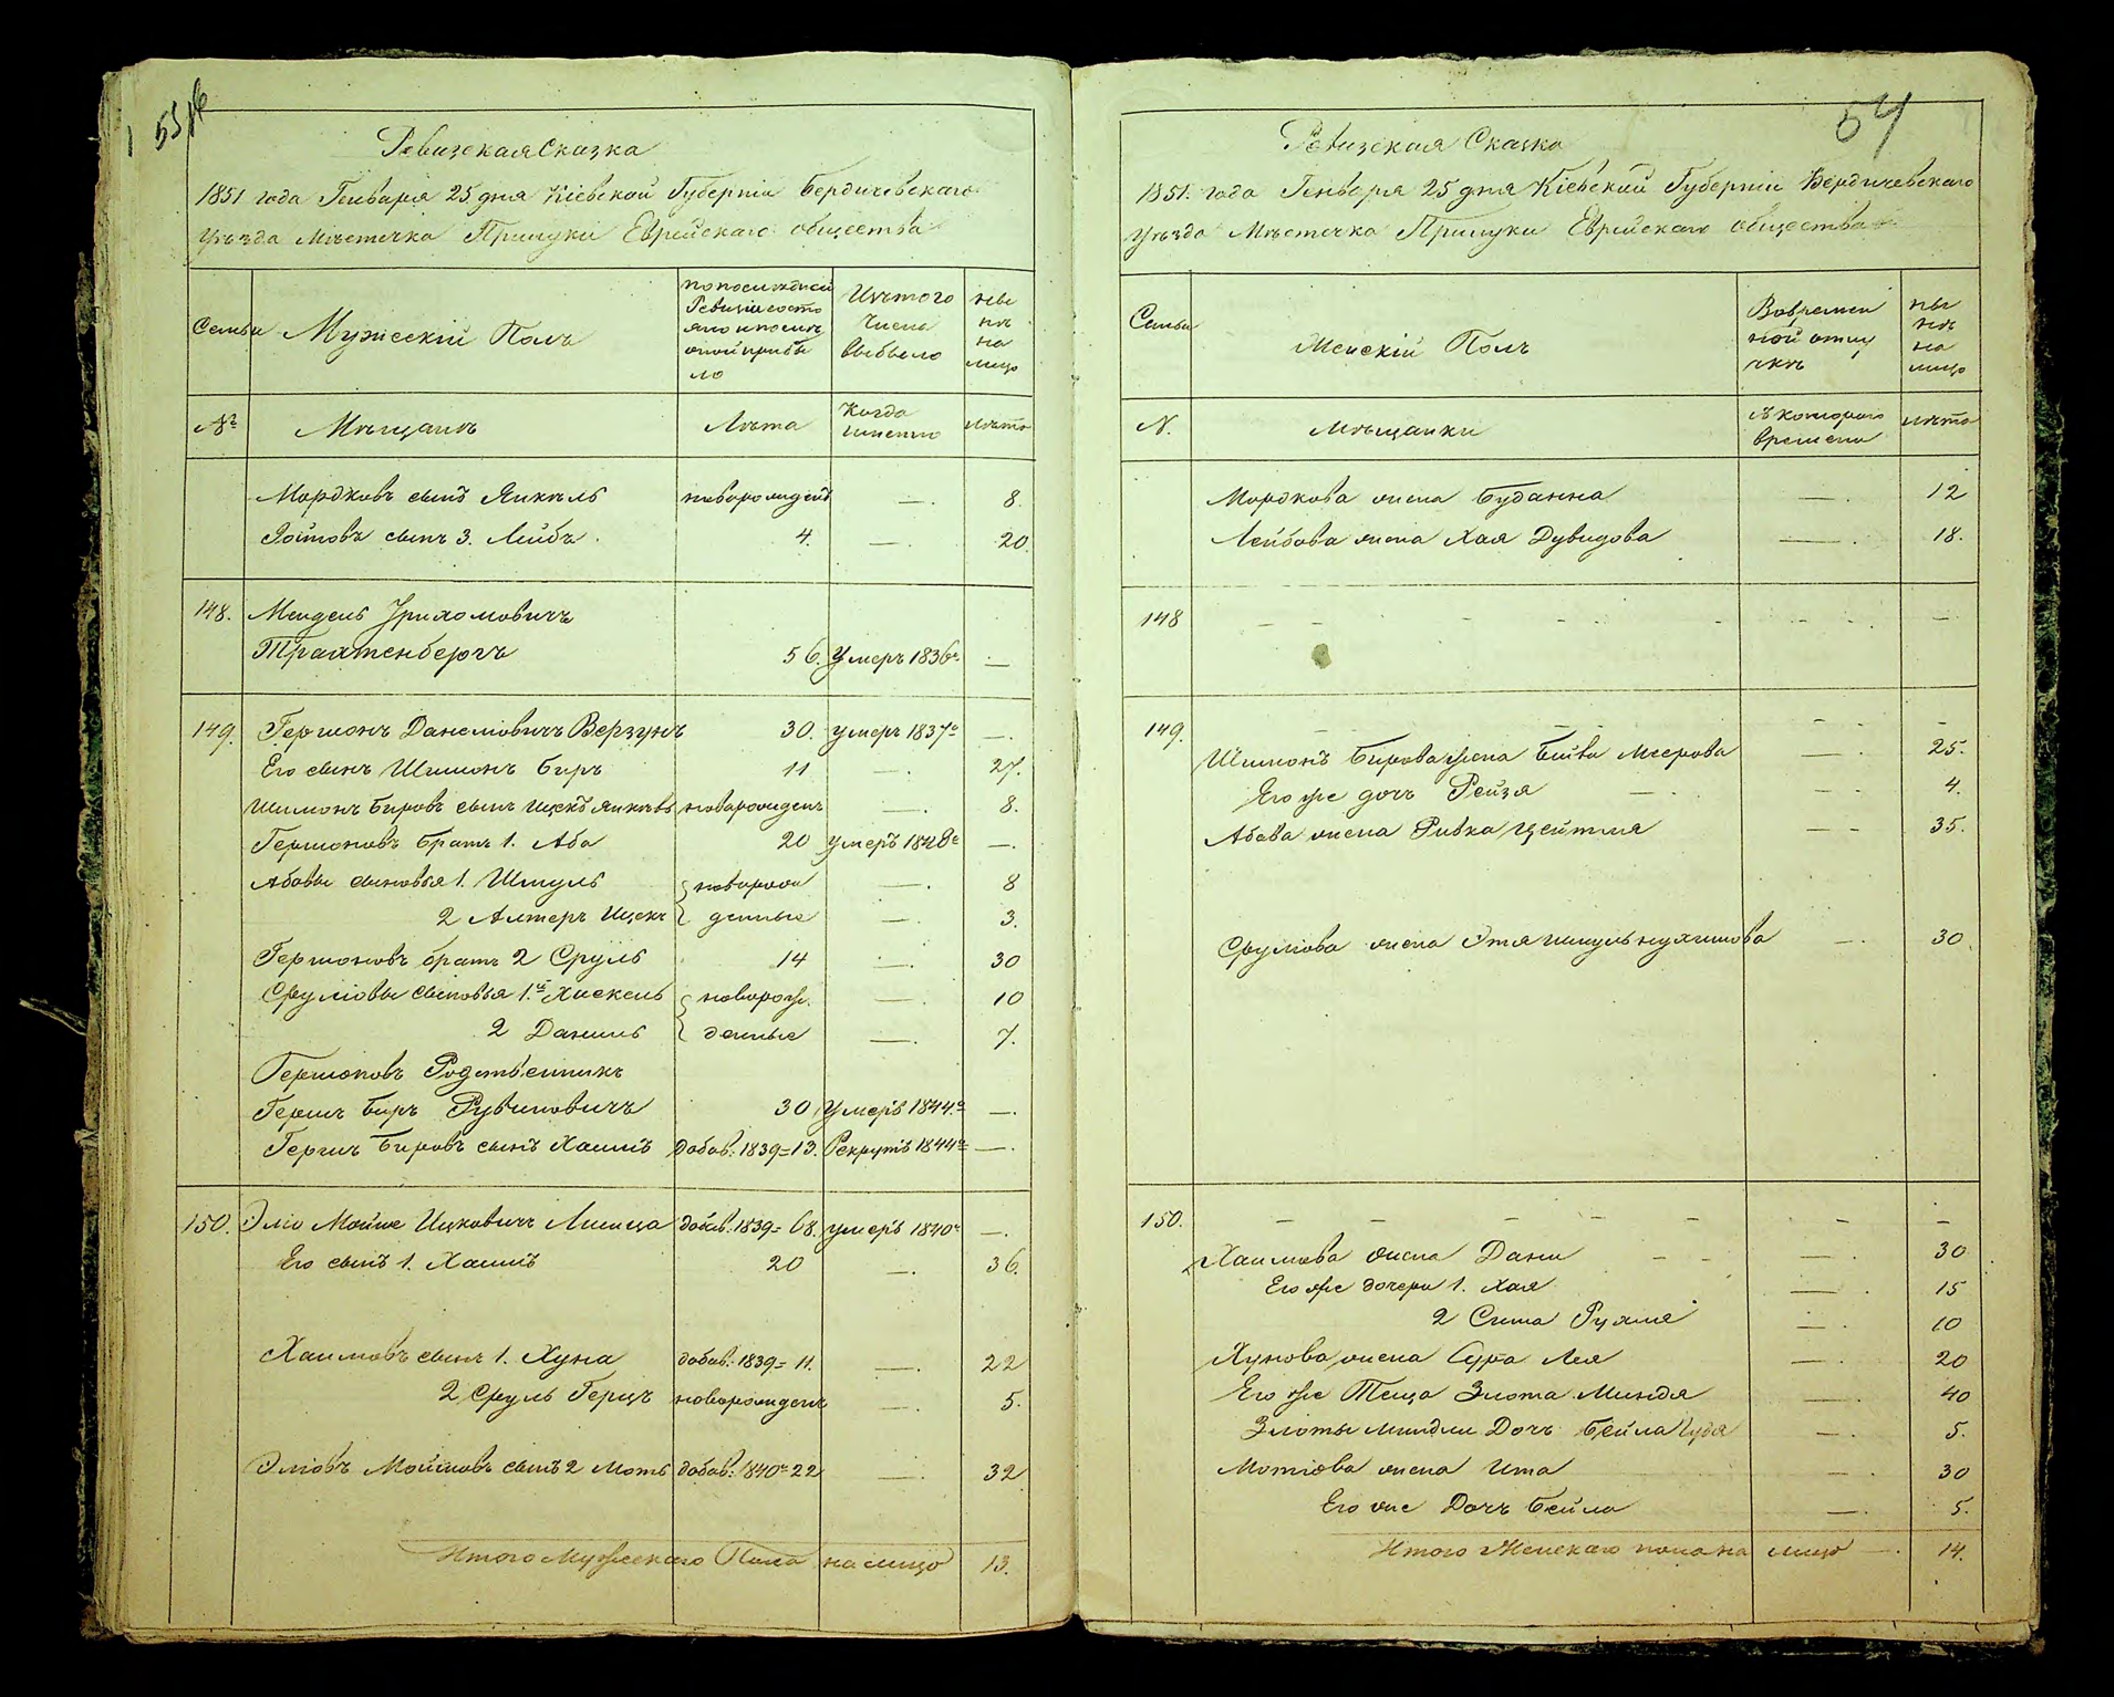 53
Ревизская Сказка
1851 года Генваря 25 дня Кіевской Губерніи Бердичевскаго
Уѣзда Мѣстечка Прилуки Еврейскаго общества
Семьи
Мужескій Полъ
по последней
Ревизіи состо
яло и послѣ
оной прибы
ло
Изъ того
числа
выбыло
ны
нѣ
на
лицо
№
Мѣщанъ
Лѣта
Когда
именно
лѣта
Мордковъ сынъ Янкель новорожденъ — 8.
Ройтовъ сынъ 3. Лейба 4. — 20.
148. Мендель
Трахтенбергъ 56. Умеръ 1836г. —
149. Гершонъ Данеліовичъ Верзунъ 30. умеръ 1837г. —
Его сынъ Шимонъ Беръ 11 — 27.
Шимонъ Беровъ сынъ Ицекъ Янкель новорожденъ — 8.
Гершоновъ братъ 1. Аба 20 умеръ 1848г. —
Абовы сыновья 1. Шмуль новорож — 8
2 Алтеръ Ицекъ денные — 3.
Гершоновъ братъ 2 Сруль 14 — 30
Сруліовы сыновья 1.й Хаскель новорож. — 10
2 Даниль денные — 7.
Гершоновъ Родственникъ
Гершъ Беръ Рувиновичъ 30 Умеръ 1844.г —
Гершъ Беровъ сынъ Хаимъ добав: 1839=13. Рекрутъ 1844г —
150. Эліо Мойше Ицковичъ Липица добав: 1839= 68. умеръ 1840г. —
Его сынъ 1. Хаимъ 20 — 36.
Хаимовъ сынъ 1. Хуна добав: 1839= 11. — 22
2 Сруль Герцъ новорожденъ — 5.
Эліовъ Мойшовъ сынъ 2 Моть добав: 1840г 22 — 32
Итого Мужескаго Пола на лицо 13.
54
Ревизская Сказка
1851. года Генваря 25 дня Кіевской Губерніи Бердичевскаго
Уѣзда Мѣстечка Прилуки Еврейскаго общества
Семьи
Женскій Полъ
Во времен
ной отлу
чкѣ
ны
нѣ
на
лицо
N.
Мѣщанки
съ котораго
времени
лѣта
Мордкова жена Буданна — 12
Лейбова жена Хая Дувидова — 18.
148 — — — — — — —
149. — — — —
Шимонъ Берова жена Бейва Меерова — 25.
Его же дочь Рейзя — — 4.
Абова жена Ривка Цейтля — 35.
Сруліова жена Этя Шмуль Нухимова — 30
150. — — — — — — —
Хаимова жена Дани — — 30
Его же дочери 1. Хая — 15
2 Сима Рухля — 10
Хунова жена Сура Лея — 20
Его же Теща Злота Миндя — 40
Злоты Миндли Дочь Бейла Гудя — 5.
Мотіова жена Ита — 30
Его же Дочь Бейла — 5.
Итого Женскаго пола на лицо — 14.